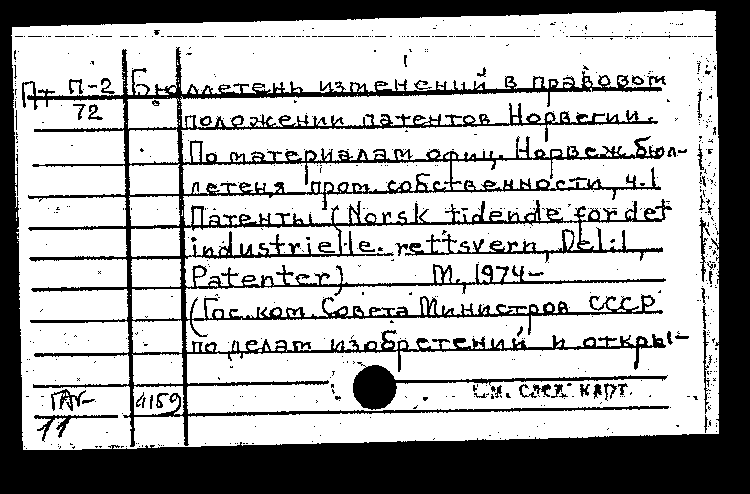 Пт П-2 Бюллетень изменений в правовом
72 положении патентов Норвегии.
По материалам офиц. Норвеж. бюл-
летеня пром. собственности, ч.1
Патенты (Norsk tidende for det
industrielle. rettsvern, Del:1,
Patenter) М., 1974-
(Гос. ком. Совета Министров СССР
по делам изобретений и откры-
См. след. карт.
4159
11